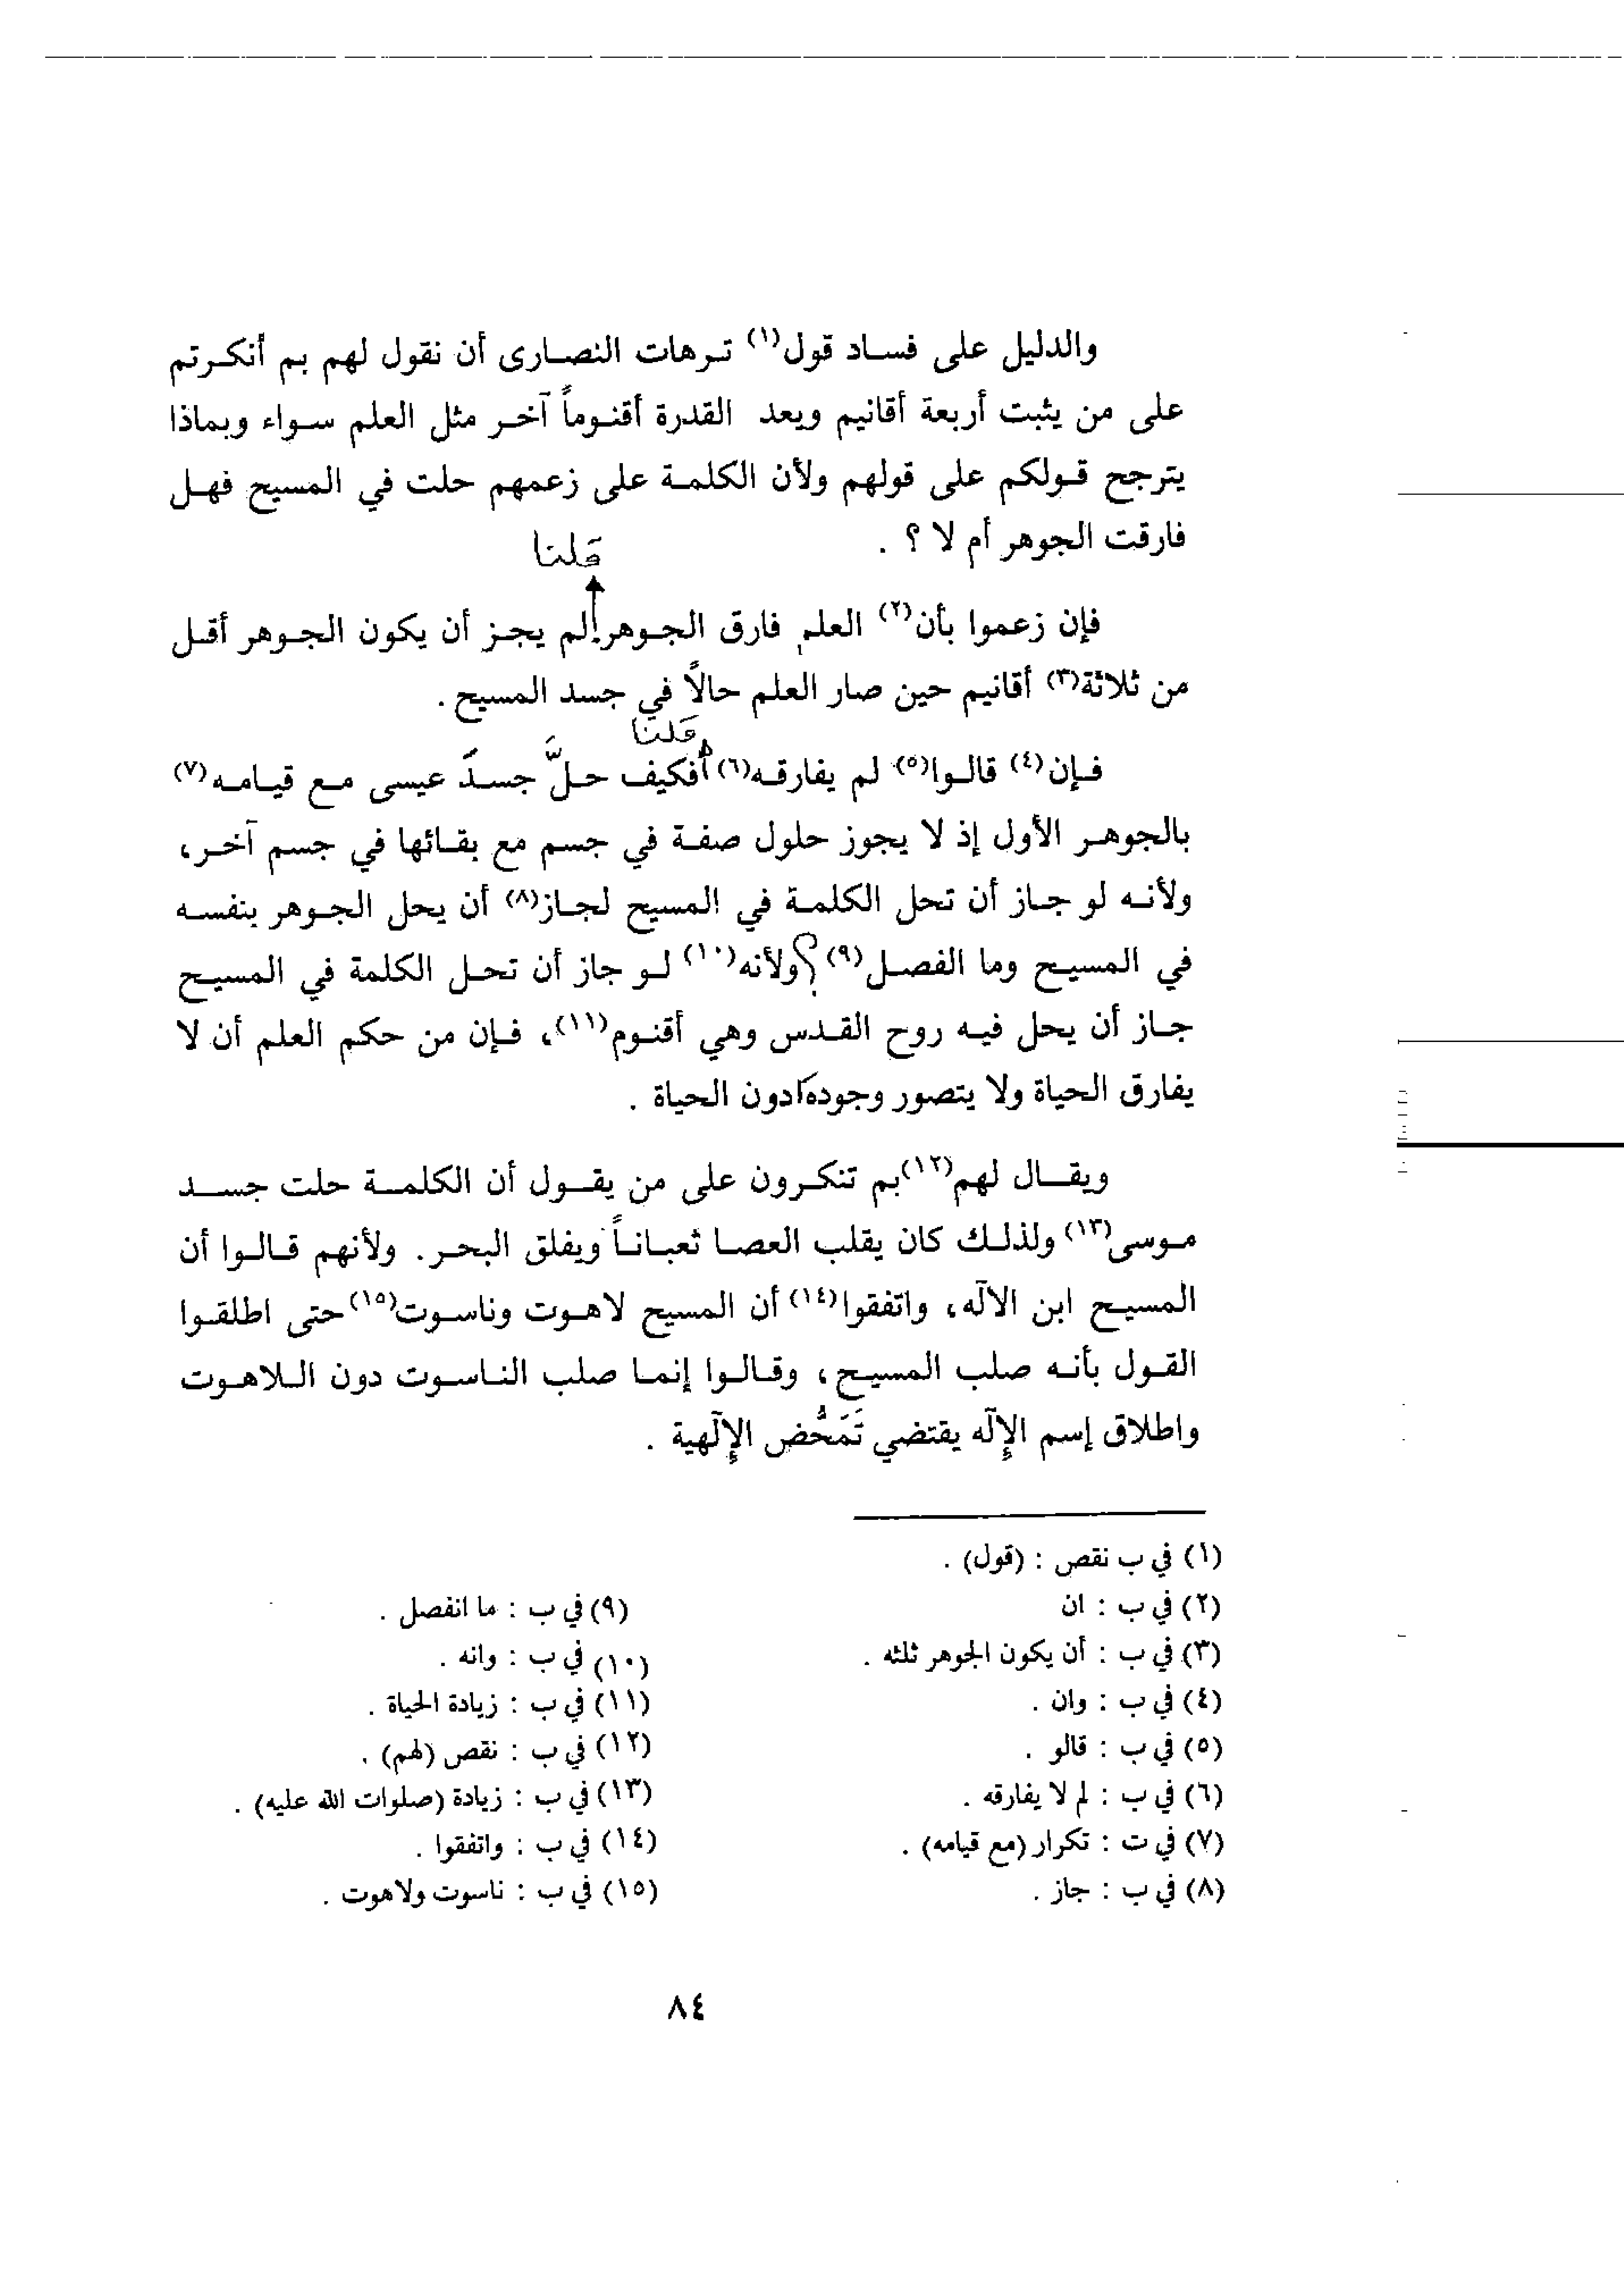 والدليل على فساد قول(١) ترهات النصارى أن نقول لهم بم أنكرتم
على من يثبت أربعة أقانيم ويعد القدرة أقنوماً آخر مثل العلم سواء وبماذا
يترجح قولكم على قولهم ولأن الكلمة على زعمهم حلت في المسيح فهل
فارقت الجوهر أم لا ؟ .
قلنا
فإن زعموا بأن(٢) العلم فارق الجوهر لم يجز أن يكون الجوهر أقل
من ثلاثة(٣) أقانيم حين صار العلم حالاً في جسد المسيح .
قلنا
فإن(٤) قالوا(٥) لم يفارقه(٦) أفكيف حلَّ جسدَ عيسى مع قيامه(٧)
بالجوهر الأول إذ لا يجوز حلول صفة في جسم مع بقائها في جسم آخر،
ولأنه لو جاز أن تحل الكلمة في المسيح لجاز(٨) أن يحل الجوهر بنفسه
في المسيح وما الفصل(٩)؟ ولأنه(١٠) لو جاز أن تحل الكلمة في المسيح
جاز أن يحل فيه روح القدس وهي أقنوم(١١)، فإن من حكم العلم أن لا
يفارق الحياة ولا يتصور وجوده دون الحياة .
ويقال لهم(١٢) بم تنكرون على من يقول أن الكلمة حلت جسد
موسى(١٣) ولذلك كان يقلب العصا ثعباناً ويفلق البحر. ولأنهم قالوا أن
المسيح ابن الآله، واتفقوا(١٤) أن المسيح لاهوت وناسوت(١٥) حتى اطلقوا
القول بأنه صلب المسيح، وقالوا إنما صلب الناسوت دون اللاهوت
واطلاق إسم الإلٓه يقتضي تَمَحُّض الإلٓهية .
(١) في ب نقص : (قول) .
(٢) في ب : ان
(٣) في ب : أن يكون الجوهر ثلثه .
(٤) في ب : وان .
(٥) في ب : قالو .
(٦) في ب : لم لا يفارقه .
(٧) في ت : تكرار (مع قيامه) .
(٨) في ب : جاز .
(٩) في ب : ما انفصل .
(١٠) في ب : وانه .
(١١) في ب : زيادة الحياة .
(١٢) في ب : نقص (لهم) .
(١٣) في ب : زيادة (صلوات الله عليه) .
(١٤) في ب : واتفقوا .
(١٥) في ب : ناسوت ولاهوت .
٨٤